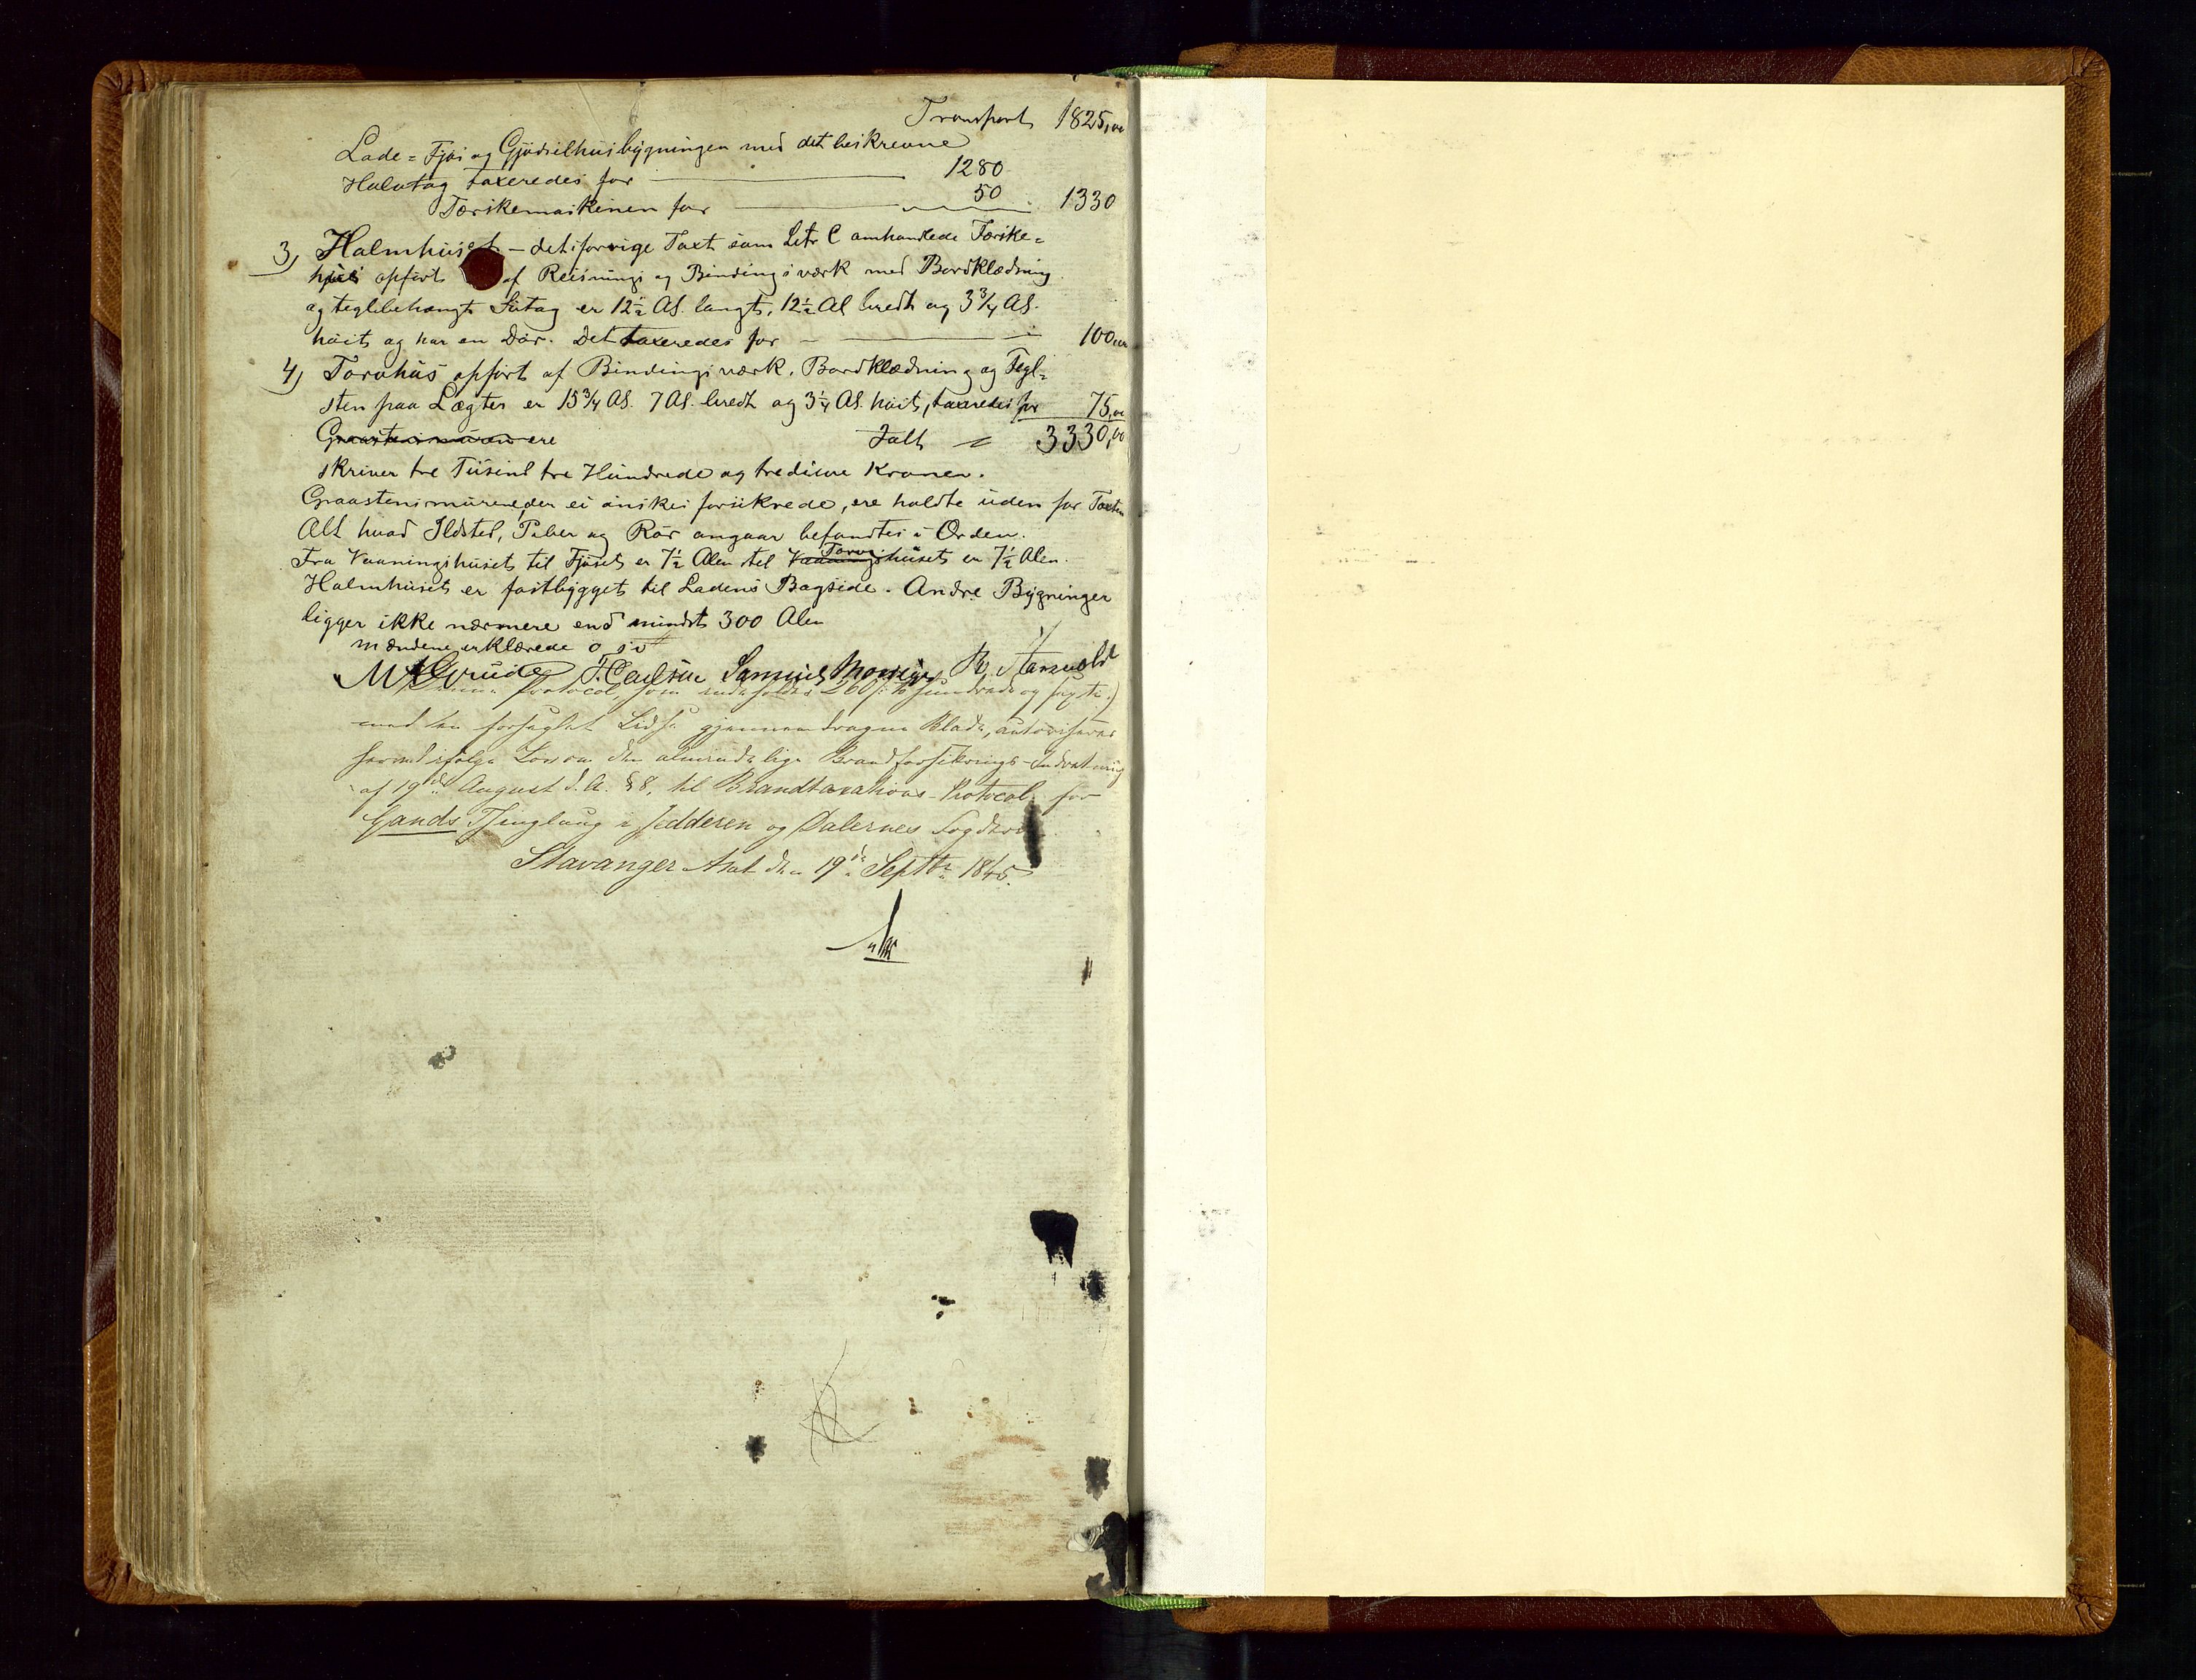 Transport 1825,00
Lade- Fjøs og Gjødselhusbygningen med det beskrevne
Halvtag taxeredes for 1280
Tærskemaskinen for 50 1330
3) Halmhuset – det i forrige Taxt som Litr C omhandlede Tærske-
hus opført af Reisnings og Bindingsværk med Bordklædning
og teglbehængt Sutag er 12½ Al. langt, 12½ Al bredt og 3¾ Al.
høit og har en Dør. Det taxeredes for 100,00
4) Torvhus opført af Bindingsværk, Bordklædning og Tegl-
sten paa Lægter er 15¾ Al. 7 Al. bredt og 3¼ Al. høit, taxeredes for 75,00
Graastensmuren ere Ialt 3330,00
skriver tre Tusind tre Hundrede og tredive Kroner.
Graastensmurene, der ei ønskes forsikrede, ere holdte uden for Taxten
Alt hvad Ildsted, Piber og Rør angaar befandtes i Orden.
Fra Vaaningshuset til Fjøset er 7½ Alen til Torvhuset er 7½ Alen.
Halmhuset er fastbygget til Ladens Bagside. Andre Bygninger
ligger ikke nærmere end mindst 300 Alen
mændene erklærede o.s.v.
M Grude T. Carlsen Samuel
Denne Protocol, som indeholder 260 /: to hundrede og sexti :/
med en forseglet Lidse gjennemdragne Blade, autoriseres
herved ifølge Lov om den almindelige Brandforsikrings-Indretning
af 19de August d.A. §8, til Brandtaxations-Protocol for
Gands Thinglaug i Jedderen og Dalernes Fogderi.
Stavanger Amt den 19de Septbr 1845.